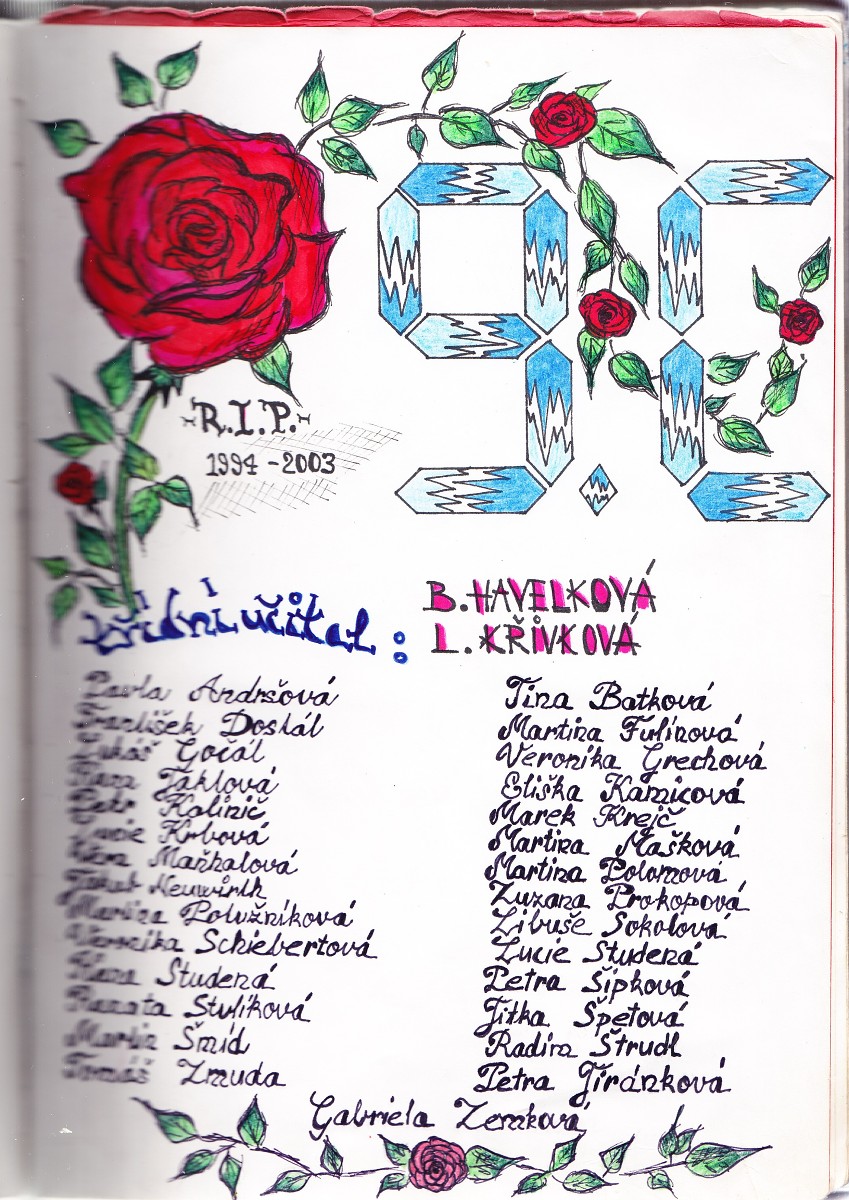 9.C
R.I.P.
1994-2003
třídní učitel:
B. HAVELKOVÁ
L. KŘIVKOVÁ
Pavla Andršová
František Doskál
Lukáš Gočál
Hana Jaklová
Petr Kalinič
Lucie Krbová
Maňhalová
Jakub Neuwirth
Martina Polužníková
Veronika Schiebertová
Hana Studená
Renata Stulíková
Martin Šmíd
Tomáš Zmuda
Tina Batková
Martina Fulínová
Veronika Grechová
Eliška Kamicová
Marek Krejč
Martina Mašková
Martina Polomová
Zuzana Prokopová
Libuše Sokolová
Lucie Studená
Petra Šípková
Jitka Špetová
Radim Štrudl
Petra Jiránková
Gabriela Zemková